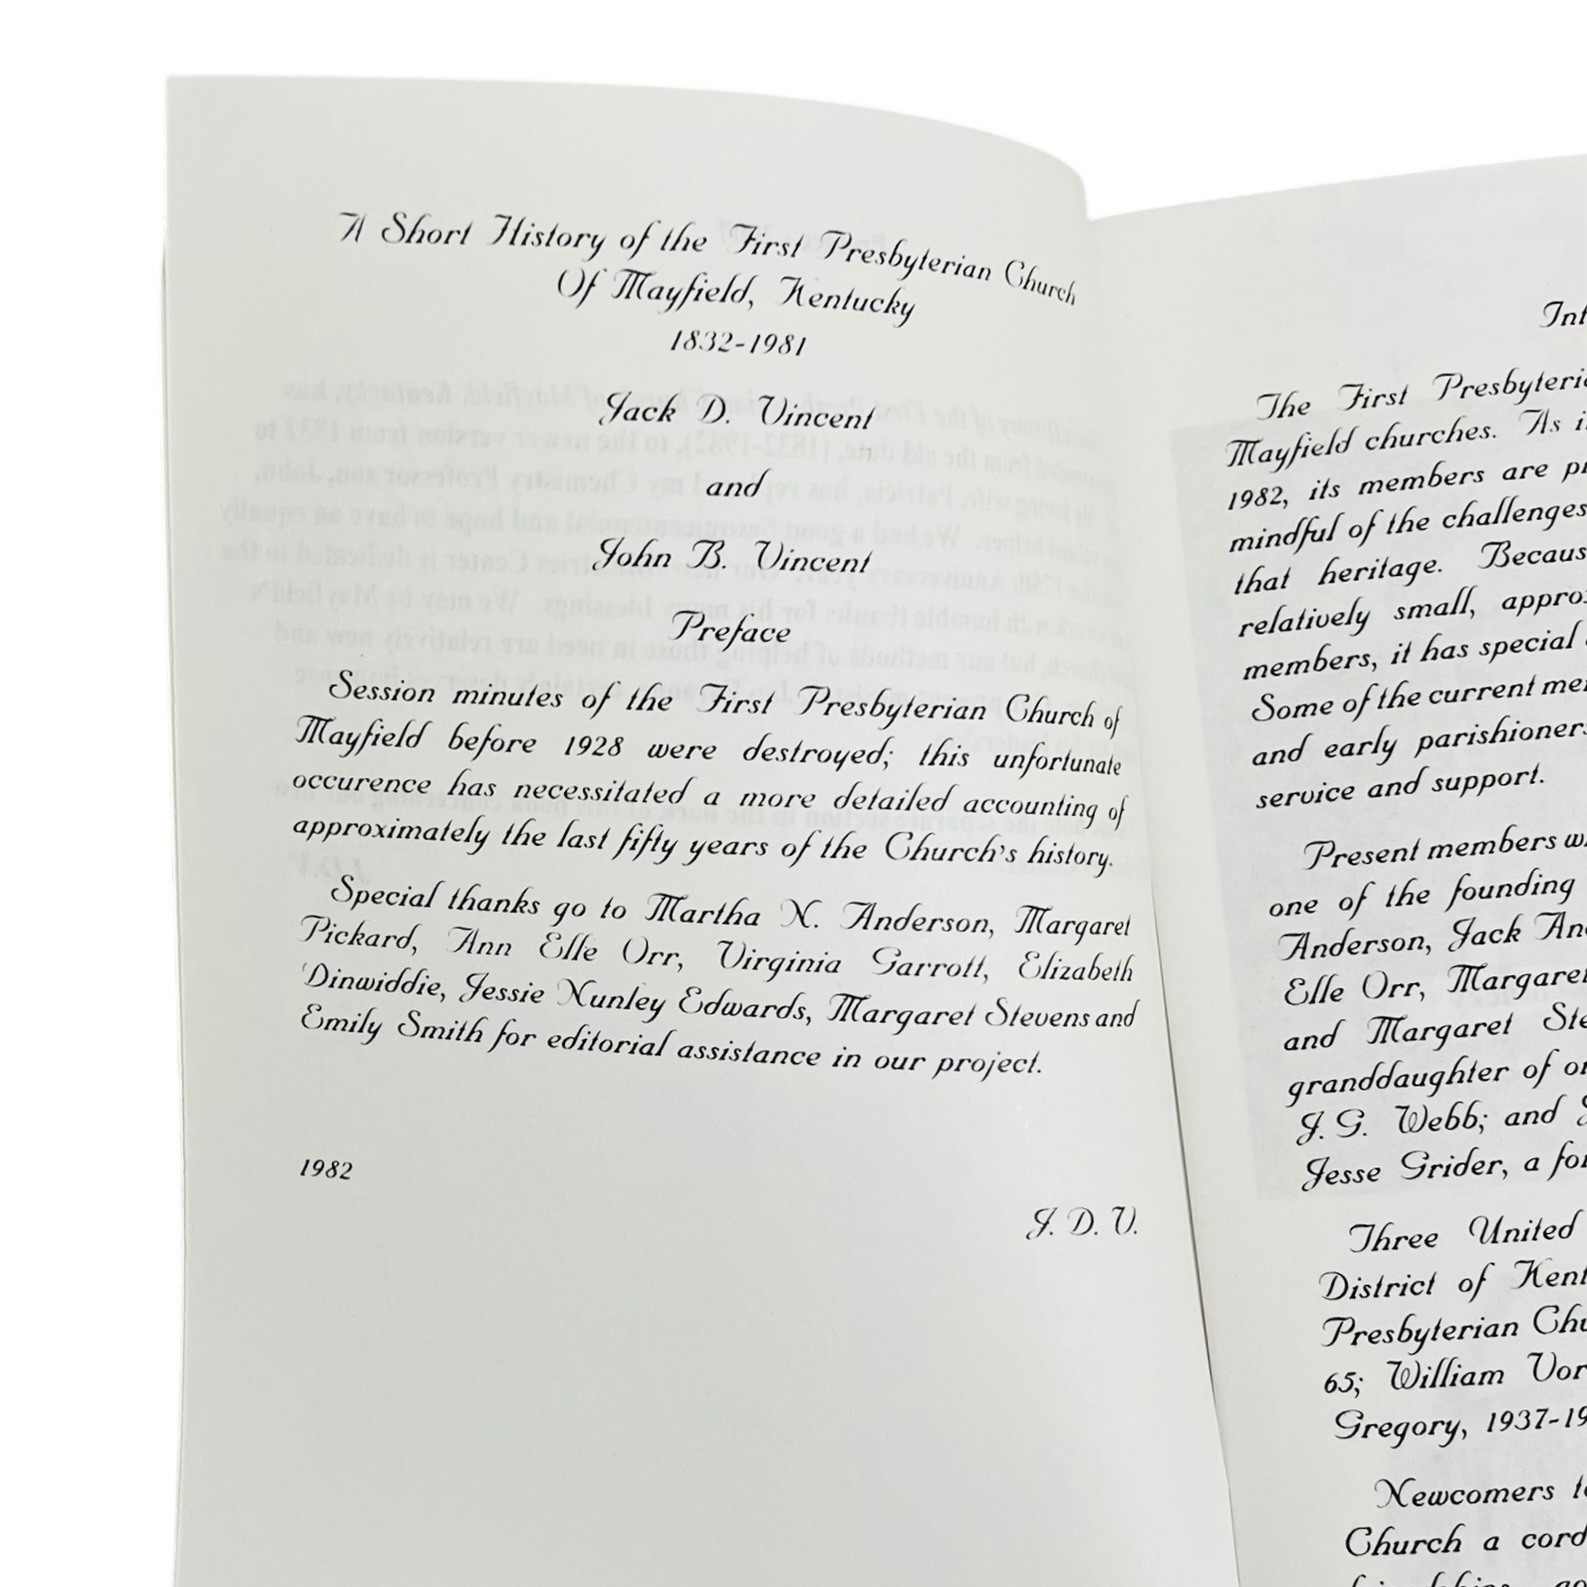 A Short History of the First Presbyterian Church
Of Mayfield, Kentucky
1832-1981
Jack D. Vincent
and
John B. Vincent
Preface
Session minutes of the First Presbyterian Church of
Mayfield before 1928 were destroyed; this unfortunate
occurence has necessitated a more detailed accounting of
approximately the last fifty years of the Church's history.
Special thanks go to Martha N. Anderson, Margaret
Pickard, Ann Elle Orr, Virginia Garrott, Elizabeth
Dinwiddie, Jessie Nunley Edwards, Margaret Stevens and
Emily Smith for editorial assistance in our project.
1982
J. D. V.
The First
Mayfield churches. As
1982, its members are
mindful of the challenges
that heritage.
relatively small,
members, it has special
Some of the current
and early
service and support.
Present members
one of the founding
Anderson, Jack
Elle Orr, Margaret
and Margaret
granddaughter of
J.G. Webb; and
Jesse Grider, a
Three United
District of
Presbyterian
65; William
Gregory,
Newcomers
Church a